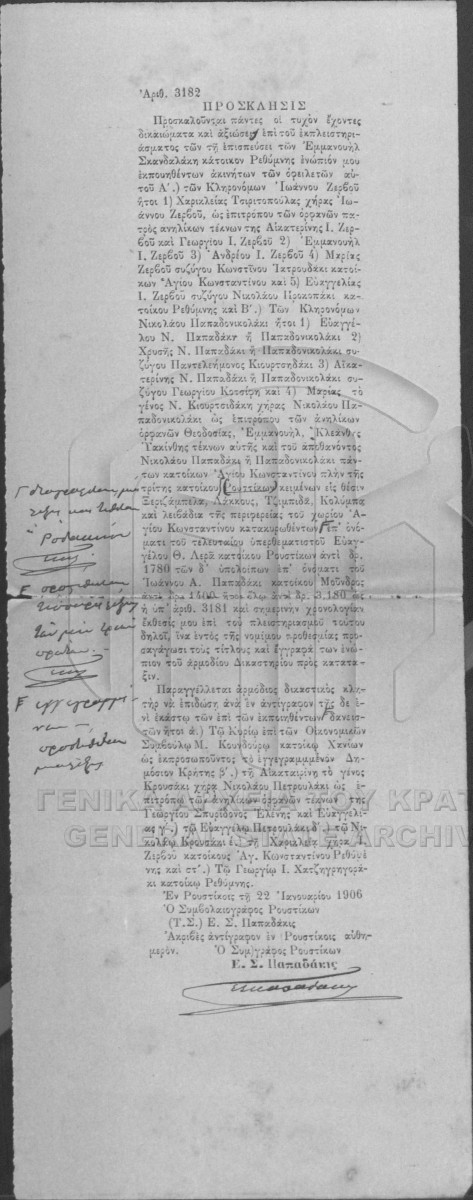 Ἀριθ. 3182
ΠΡΟΣΚΛΗΣΙΣ
Προσκαλοῦνται πάντες οἱ τυχὸν ἔχοντες
δικαιώματα καὶ ἀξιώσεις ἐπὶ τοῦ ἐκπλειστηρι-
άσματος τῶν τῇ ἐπισπεύσει τῶν Ἐμμανουὴλ
Σκανδαλάκη κάτοικον Ρεθύμνης ἐνώπιόν μου
ἐκποιηθέντων ἀκινήτων τῶν ὀφειλετῶν αὐ-
τοῦ Α΄.) τῶν Κληρονόμων Ἰωάννου Ζερβοῦ
ἤτοι 1) Χαρικλείας Τσιριτοπούλας χήρας Ἰω-
άννου Ζερβοῦ, ὡς ἐπιτρόπου τῶν ὀρφανῶν πα-
τρὸς ἀνηλίκων τέκνων της Αἰκατερίνης Ι. Ζερ-
βοῦ καὶ Γεωργίου Ι. Ζερβοῦ 2) Ἐμμανουὴλ
Ι. Ζερβοῦ 3) Ἀνδρέου Ι. Ζερβοῦ 4) Μαρίας
Ζερβοῦ συζύγου Κωνστίνου Ἰατρουδάκι κατοί-
κων Ἁγίου Κωνσταντίνου καὶ 5) Εὐαγγελίας
Ι. Ζερβοῦ συζύγου Νικολάου Προκοπάκι κα-
τοίκου Ρεθύμνης καὶ Β΄.) Τῶν Κληρονόμων
Νικολάου Παπαδονικολάκι ἤτοι 1) Εὐαγγέ-
λου Ν. Παπαδάκη ἢ Παπαδονικολάκι 2)
Χρυσῆς Ν. Παπαδάκι ἢ Παπαδονικολάκι συ-
ζύγου Παντελεήμονος Κιουρτσηδάκι 3) Αἰκα-
τερίνης Ν. Παπαδάκι ἢ Παπαδονικολάκι συ-
ζύγου Γεωργίου Κουσίπη καὶ 4) Μαρίας τὸ
γένος Ν. Κιουρτσιδάκη χήρας Νικολάου Πα-
παδονικολάκι ὡς ἐπιτρόπου τῶν ἀνηλίκων
ὀρφανῶν Θεοδοσίας, Ἐμμανουήλ, Κλεάνθης
Ὑακίνθης τέκνων αὐτῆς καὶ τοῦ ἀποθανόντος
Νικολάου Παπαδάκι ἢ Παπαδονικολάκι πάν-
των κατοίκων Ἁγίου Κωνσταντίνου πλὴν τῆς
τρίτης κατοίκου Ρουστίκων κειμένων εἰς θέσιν
Ξεριζάμπελα, Λάκκους, Τζαμπιδᾶ, Κολύμπα
καὶ λειβάδια τῆς περιφερείας τοῦ χωρίου Ἁ-
γίου Κωνσταντίνου κατακυρωθέντων ἐπ' ὀνό-
ματι τοῦ τελευταίου ὑπερθεματιστοῦ Εὐαγ-
γέλου Θ. Λερᾶ κατοίκου Ρουστίκων ἀντὶ δρ.
1780 τῶν δ' ὑπολοίπων ἐπ' ὀνόματι τοῦ
Ἰωάννου Α. Παπαδάκι κατοίκου Μούνδρος
ἀντὶ δρ. 1400 ἤτοι ὅλων ἀντὶ δρ. 3,180 ὡς
ἡ ὑπ' ἀριθ. 3181 καὶ σημερινὴν χρονολογίαν
ἔκθεσίς μου ἐπὶ τοῦ πλειστηριασμοῦ τούτου
δηλοῖ, ἵνα ἐντὸς τῆς νομίμου προθεσμίας προ-
σαγάγωσι τοὺς τίτλους καὶ ἔγγραφά των ἐνώ-
πιον τοῦ ἁρμοδίου Δικαστηρίου πρὸς κατάτα-
ξιν.
Παραγγέλλεται ἁρμόδιος δικαστικὸς κλη-
τὴρ νὰ ἐπιδώσῃ ἀνὰ ἓν ἀντίγραφον τῆς δε ἑ-
νὶ ἑκάστῳ τῶν ἐπὶ τῶν ἐκποιηθέντων δανεισ-
τῶν ἤτοι α.) Τῷ Κυρίῳ ἐπὶ τῶν Οἰκονομικῶν
Συμβούλῳ Μ. Κουνδούρῳ κατοίκῳ Χανίων
ὡς ἐκπροσωποῦντος τὸ ἐγγεγραμμένον Δη-
μόσιον Κρήτης β΄.) τῇ Αἰκατερίνῃ τὸ γένος
Κρουσάκι χήρᾳ Νικολάου Πετρουλάκι ὡς ἐ-
πιτρόπῳ τῶν ἀνηλίκων ὀρφανῶν τέκνων της
Γεωργίου Σπυρίδονος Ἑλένης καὶ Εὐαγγελί-
ας γ΄.) τῷ Εὐαγγέλῳ Πετρουλάκι δ΄.) τῷ Νι-
κολάῳ Κρουσάκι ε΄.) τῇ Χαρικλείᾳ χήρᾳ Ι.
Ζερβοῦ κατοίκους Ἁγ. Κωνσταντίνου Ρεθύμ-
νης καὶ στ΄.) Τῷ Γεωργίῳ Ι. Χατζηγρηγορά-
κι κατοίκῳ Ρεθύμνης.
Ἐν Ρουστίκοις τῇ 22 Ἰανουαρίου 1906
Ὁ Συμβολαιογράφος Ρουστίκων
(Τ.Σ.) Ε. Σ. Παπαδάκις
Ἀκριβὲς ἀντίγραφον ἐν Ρουστίκοις αὐθη-
μερόν. Ὁ Συμ)γράφος Ρουστίκων
Ε. Σ. Παπαδάκις
ΓΕΝΙΚΑ ΑΡΧΕΙΑ ΤΟΥ ΚΡΑΤ
GENERAL STATE ARCHIV